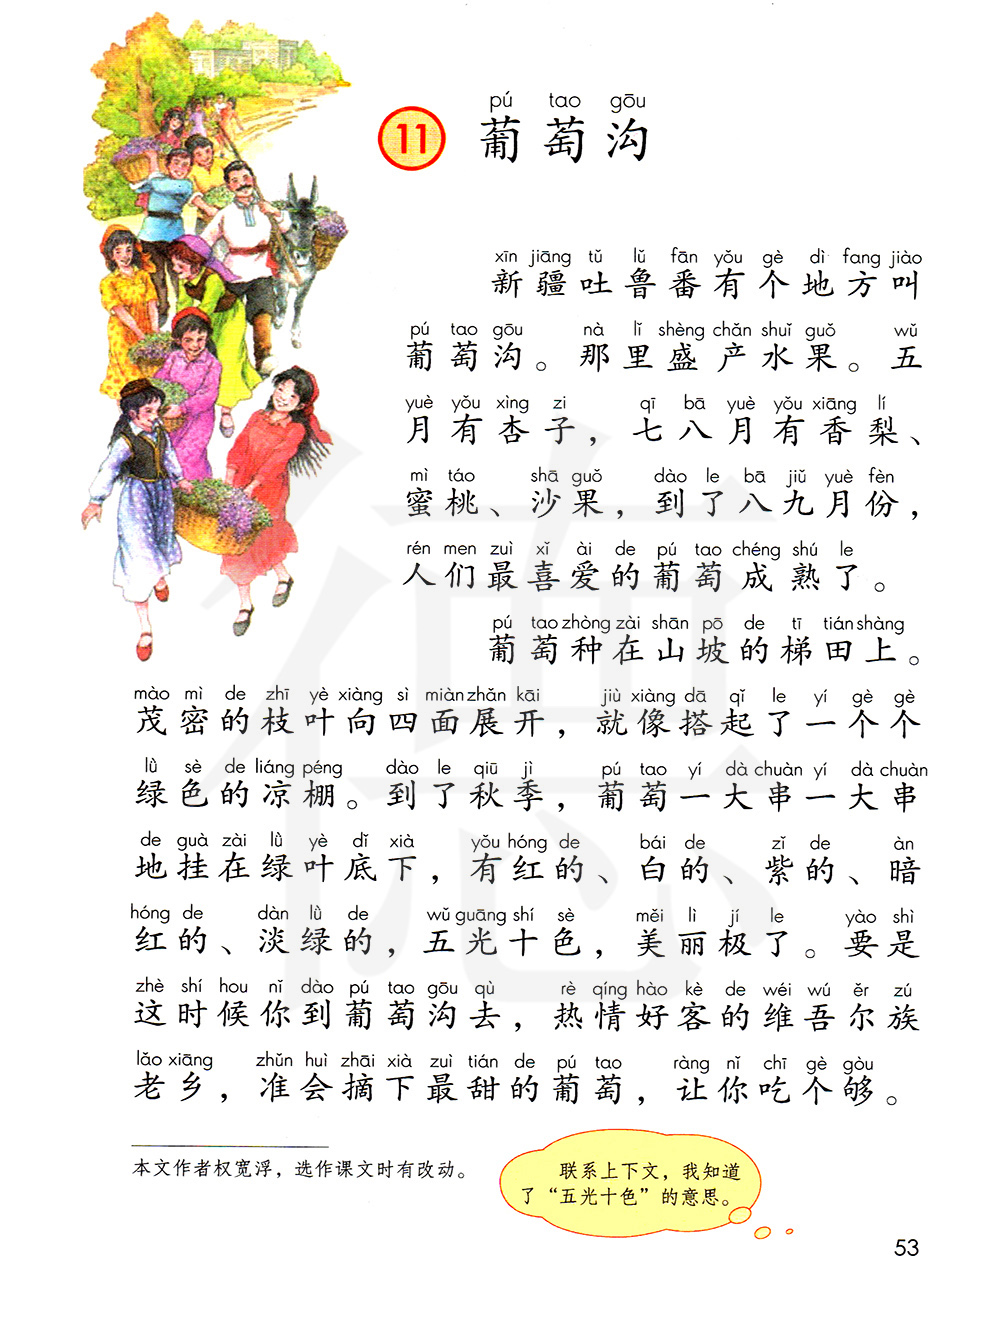 pú tao gōu
11 葡萄沟
xīn jiāng tǔ lǔ fān yǒu gè dì fang jiào
新疆吐鲁番有个地方叫
pú tao gōu nà lǐ shèng chǎn shuǐ guǒ wǔ
葡萄沟。那里盛产水果。五
yuè yǒu xìng zi qī bā yuè yǒu xiāng lí
月有杏子，七八月有香梨、
mì táo shā guǒ dào le bā jiǔ yuè fèn
蜜桃、沙果，到了八九月份，
rén men zuì xǐ ài de pú tao chéng shú le
人们最喜爱的葡萄成熟了。
pú tao zhòng zài shān pō de tī tián shàng
葡萄种在山坡的梯田上。
mào mì de zhī yè xiàng sì miàn zhǎn kāi jiù xiàng dā qǐ le yí gè gè
茂密的枝叶向四面展开，就像搭起了一个个
lǜ sè de liáng péng dào le qiū jì pú tao yí dà chuàn yí dà chuàn
绿色的凉棚。到了秋季，葡萄一大串一大串
de guà zài lǜ yè dǐ xià yǒu hóng de bái de zǐ de àn
地挂在绿叶底下，有红的、白的、紫的、暗
hóng de dàn lǜ de wǔ guāng shí sè měi lì jí le yào shì
红的、淡绿的，五光十色，美丽极了。要是
zhè shí hou nǐ dào pú tao gōu qù rè qíng hào kè de wéi wú ěr zú
这时候你到葡萄沟去，热情好客的维吾尔族
lǎo xiāng zhǔn huì zhāi xià zuì tián de pú tao ràng nǐ chī gè gòu
老乡，准会摘下最甜的葡萄，让你吃个够。
本文作者权宽浮，选作课文时有改动。
联系上下文，我知道
了“五光十色”的意思。
53
德